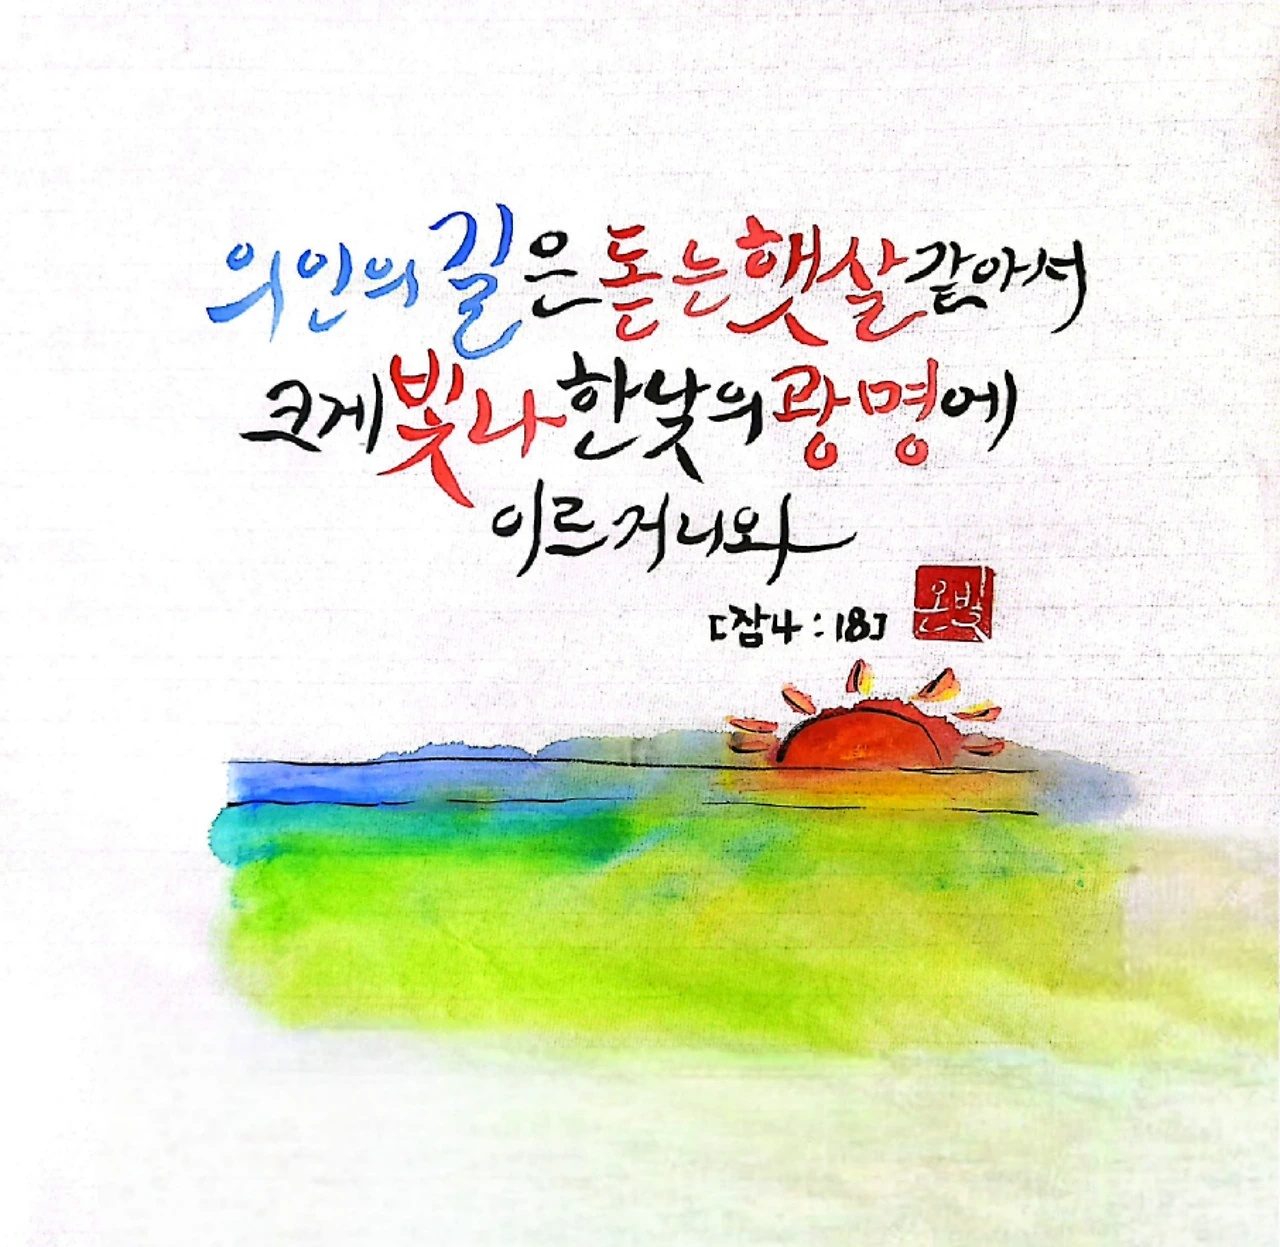 의인의 길은 돋는 햇살 같아서
크게 빛나 한낮의 광명에
이르거니와
[잠4:18]
온빛